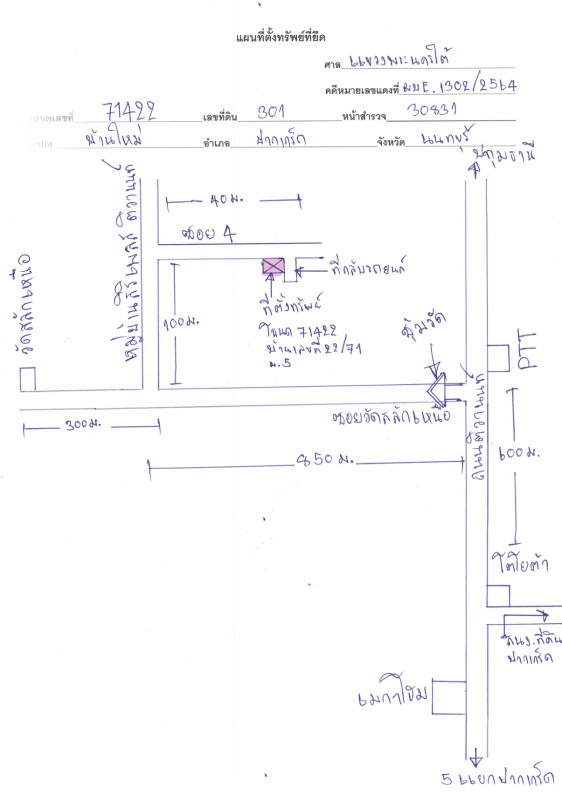 แผนที่ตั้งทรัพย์ที่ยึด
ศาล แขวงพระนครใต้
คดีหมายเลขแดงที่ ผบE. 1302/2564
71422 เลขที่ดิน 301 หน้าสำรวจ 30831
บ้านใหม่ อำเภอ ปากเกร็ด จังหวัด นนทบุรี
ปทุมธานี
40 ม.
ซอย 4
ที่กลับรถยนต์
วัดสลักเหนือ
ติวานนท์
100 ม.
ที่ตั้งทรัพย์
โฉนด 71422
บ้านเลขที่ 22/71
ม.5
ซุ้มวัด
PTT
ซอยวัดสลักเหนือ
300 ม.
ถนนติวานนท์
850 ม.
600 ม.
โตโยต้า
สนง.ที่ดิน
ปากเกร็ด
เมกาโฮม
5 แยกปากเกร็ด